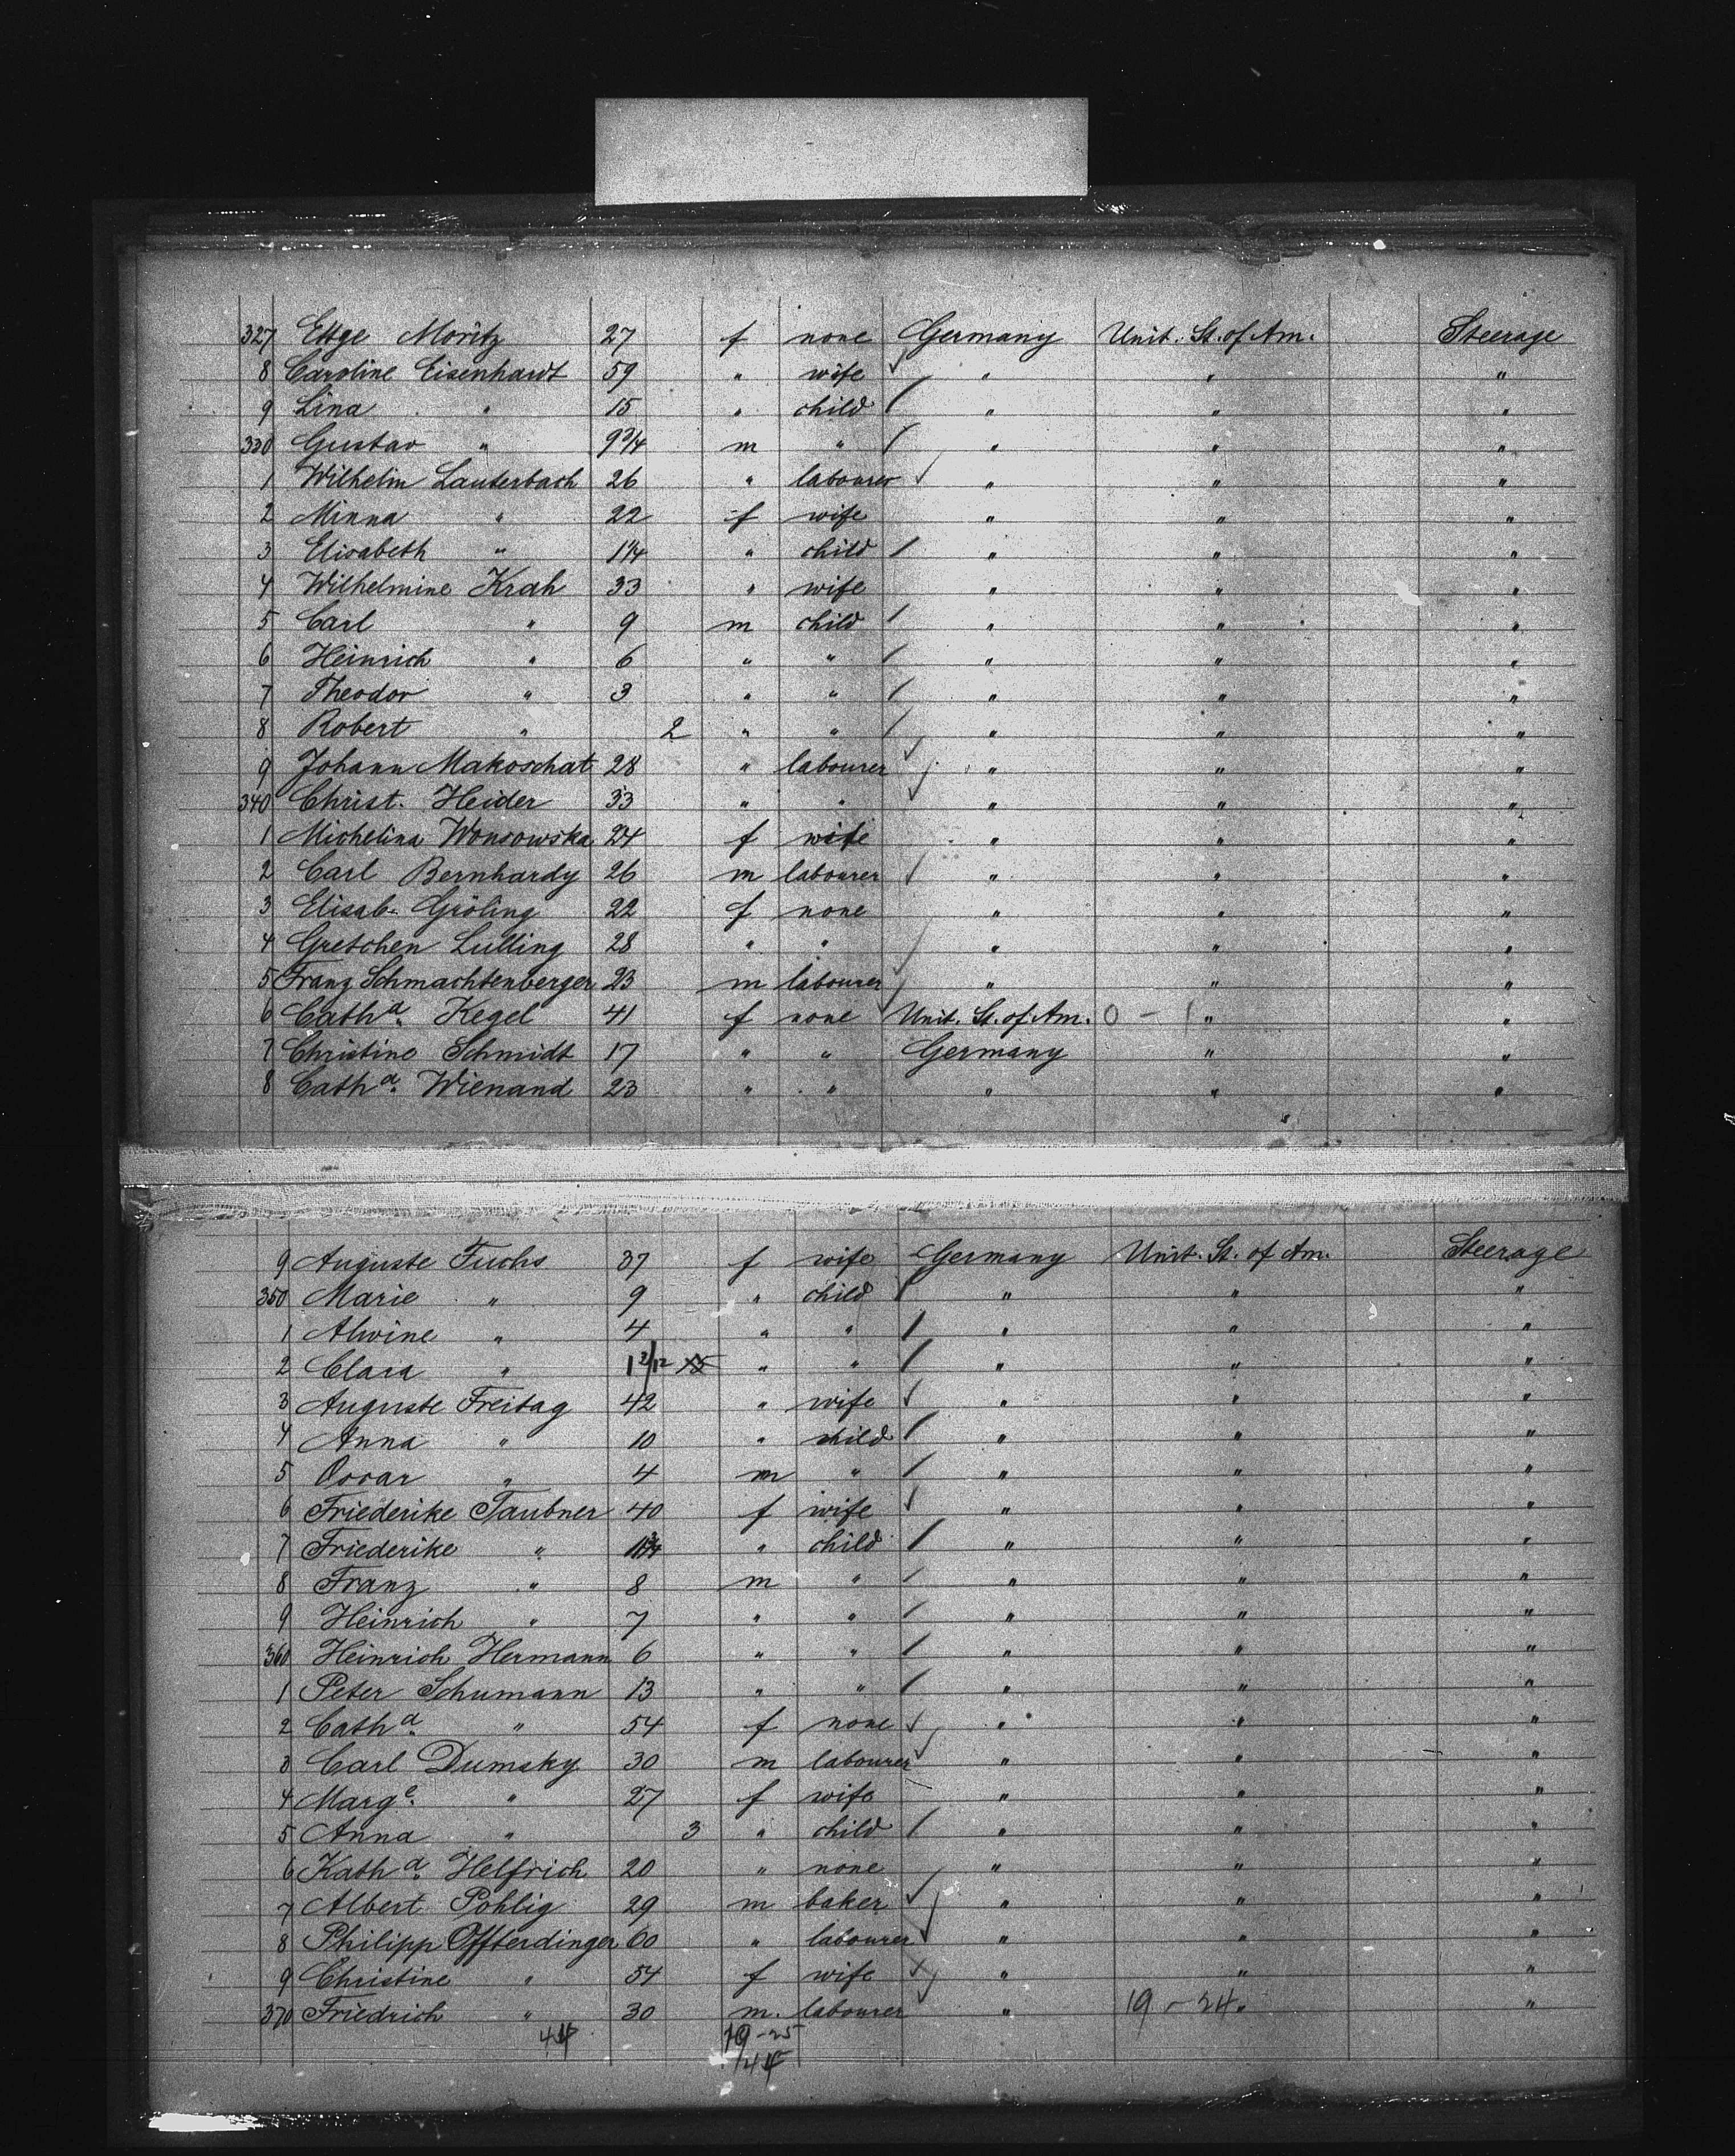 327 Ettge Moritz 27 f none Germany Unit. St. of Am. Steerage
8 Caroline Eisenhardt 59 " wife " " "
9 Lina " 15 " child " " "
330 Gustav " 9 3/4 m " " " "
1 Wilhelm Lauterbach 26 " labourer " " "
2 Minna " 22 f wife " " "
3 Elisabeth " 1 1/4 " child " " "
4 Wilhelmine Krah 33 " wife " " "
5 Carl " 9 m child " " "
6 Heinrich " 6 " " " " "
7 Theodor " 3 " " " " "
8 Robert " 2 " " " " "
9 Johann Makoschat 28 " labourer " " "
340 Christ. Heider 33 " " " " "
1 Michelina Wonsowska 24 f wife " " "
2 Carl Bernhardy 26 m labourer " " "
3 Elisab. Gröling 22 f none " " "
4 Gretchen Lulling 28 " " " " "
5 Franz Schmachtenberger 23 m labourer " " "
6 Catha. Kegel 41 f none Unit. St. of Am. 0 - 1 " "
7 Christine Schmidt 17 " " Germany " "
8 Catha. Wienand 23 " " " " "
9 Auguste Fuchs 37 f wife Germany Unit. St. of Am. Steerage
350 Marie " 9 " child " " "
1 Alwine " 4 " " " " "
2 Clara " 1 2/12 " " " " "
3 Auguste Freitag 42 " wife " " "
4 Anna " 10 " child " " "
5 Oscar " 4 m " " " "
6 Friederike Taubner 40 f wife " " "
7 Friederike " " child " " "
8 Franz " 8 m " " " "
9 Heinrich " 7 " " " " "
360 Heinrich Hermann 6 " " " " "
1 Peter Schumann 13 " " " " "
2 Catha. " 54 f none " " "
3 Carl Dumsky 30 m labourer " " "
4 Marge. " 27 f wife " " "
5 Anna " 3 " child " " "
6 Katha. Helfrich 20 " none " " "
7 Albert Pohlig 29 m baker " " "
8 Philipp Offterdinger 60 " labourer " " "
9 Christine " 54 f wife " " "
370 Friedrich " 30 m. labourer " 19 - 24 " "
44 19-25
44